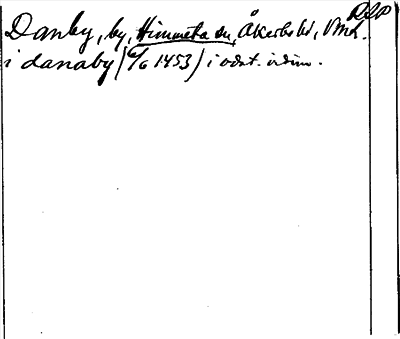 DSP
Danby, by, Himmeta sn, Åkerbo hd, Vml.
i danaby (6/6 1453) i odat. vidim.